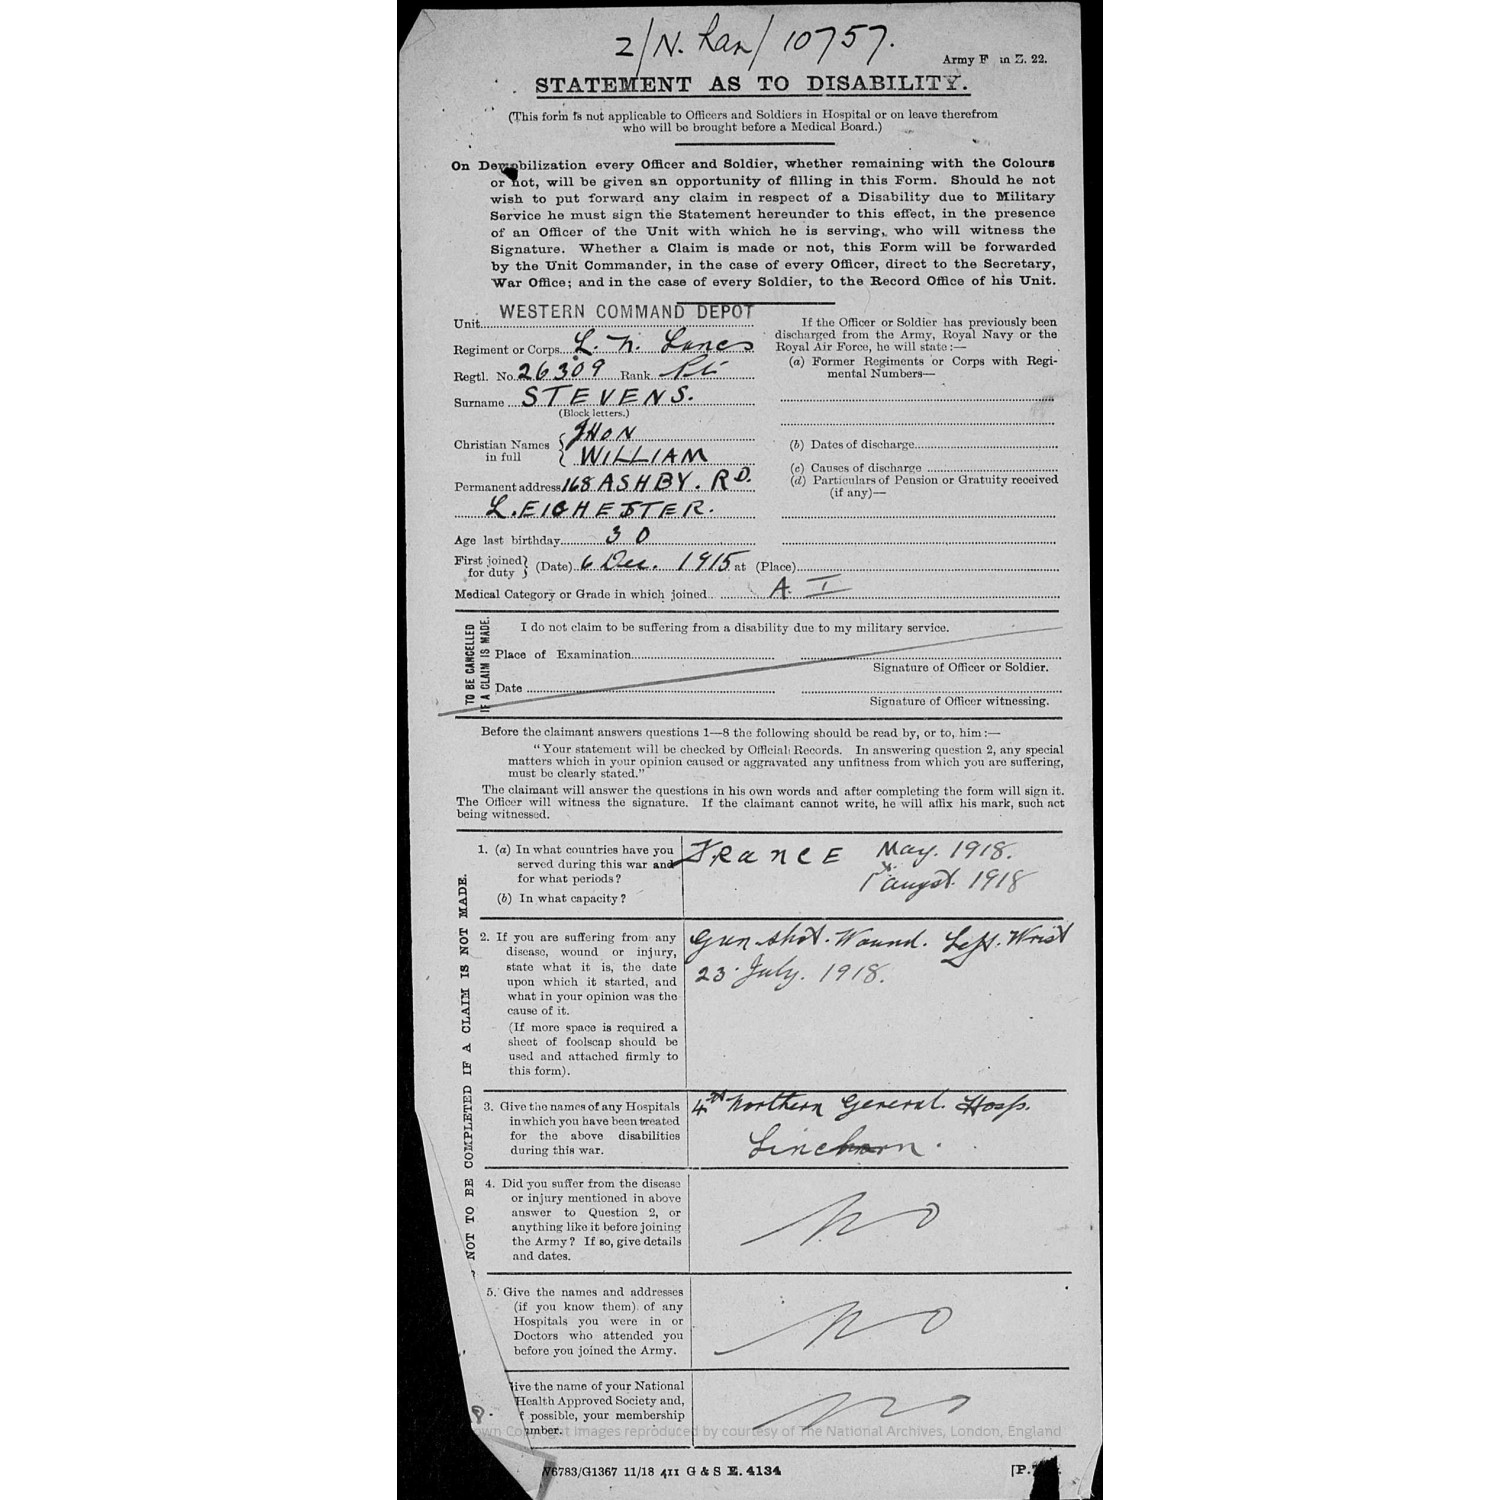 2/N. Lan/ 10757.
Army F in Z. 22.
STATEMENT AS TO DISABILITY.
(This form is not applicable to Officers and Soldiers in Hospital or on leave therefrom
who will be brought before a Medical Board.)
On Demobilization every Officer and Soldier, whether remaining with the Colours
or not, will be given an opportunity of filling in this Form. Should he not
wish to put forward any claim in respect of a Disability due to Military
Service he must sign the Statement hereunder to this effect, in the presence
of an Officer of the Unit with which he is serving, who will witness the
Signature. Whether a Claim is made or not, this Form will be forwarded
by the Unit Commander, in the case of every Officer, direct to the Secretary,
War Office; and in the case of every Soldier, to the Record Office of his Unit.
Unit WESTERN COMMAND DEPOT
Regiment or Corps L. N. Lancs
Regtl. No. 26309 Rank Pte
Surname STEVENS.
(Block letters.)
Christian Names in full JHON
WILLIAM
Permanent address 168 ASHBY. RD.
LEICHESTER.
Age last birthday 30
First joined for duty (Date) 6 Dec. 1915 at (Place)
Medical Category or Grade in which joined A. I
If the Officer or Soldier has previously been
discharged from the Army, Royal Navy or the
Royal Air Force, he will state:—
(a) Former Regiments or Corps with Regi-
mental Numbers—
(b) Dates of discharge
(c) Causes of discharge
(d) Particulars of Pension or Gratuity received
(if any)—
TO BE CANCELLED
IF A CLAIM IS MADE.
I do not claim to be suffering from a disability due to my military service.
Place of Examination
Signature of Officer or Soldier.
Date
Signature of Officer witnessing.
Before the claimant answers questions 1—8 the following should be read by, or to, him:—
"Your statement will be checked by Official Records. In answering question 2, any special
matters which in your opinion caused or aggravated any unfitness from which you are suffering,
must be clearly stated."
The claimant will answer the questions in his own words and after completing the form will sign it.
The Officer will witness the signature. If the claimant cannot write, he will affix his mark, such act
being witnessed.
NOT TO BE COMPLETED IF A CLAIM IS NOT MADE.
1. (a) In what countries have you
served during this war and
for what periods?
(b) In what capacity?
FRANCE May. 1918.
1 augst. 1918
2. If you are suffering from any
disease, wound or injury,
state what it is, the date
upon which it started, and
what in your opinion was the
cause of it.
(If more space is required a
sheet of foolscap should be
used and attached firmly to
this form).
Gun shot. Wound. Left. Wrist
23. July. 1918.
3. Give the names of any Hospitals
in which you have been treated
for the above disabilities
during this war.
4th Northern General. Hosp.
4. Did you suffer from the disease
or injury mentioned in above
answer to Question 2, or
anything like it before joining
the Army? If so, give details
and dates.
No
5. Give the names and addresses
(if you know them) of any
Hospitals you were in or
Doctors who attended you
before you joined the Army.
No
ive the name of your National
Health Approved Society and,
f possible, your membership
umber.
No
own Copyright Images reproduced by courtesy of The National Archives, London, England
W6783/G1367 11/18 411 G & S E. 4134
[P.T.